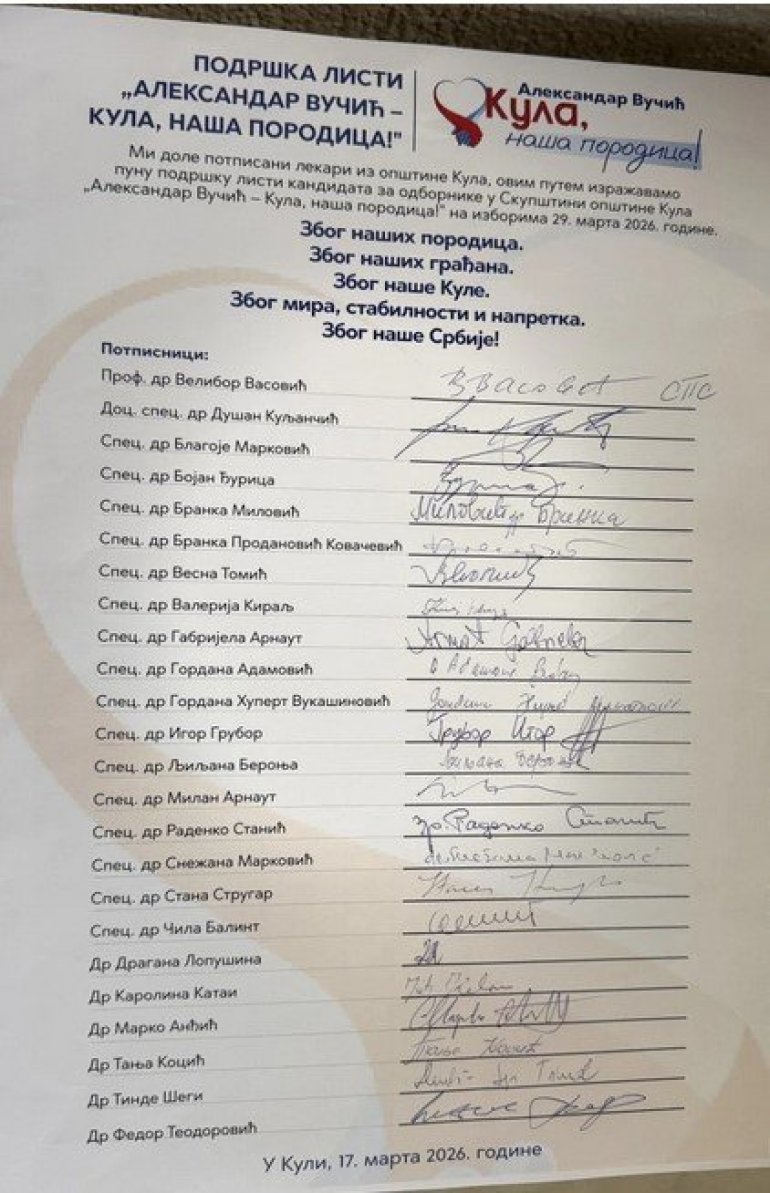 ПОДРШКА ЛИСТИ
„АЛЕКСАНДАР ВУЧИЋ –
КУЛА, НАША ПОРОДИЦА!"
Александар Вучић
Кула,
наша породица!
Ми доле потписани лекари из општине Кула, овим путем изражавамо
пуну подршку листи кандидата за одборнике у Скупштини општине Кула
„Александар Вучић – Кула, наша породица!" на изборима 29. марта 2026. године.
Због наших породица.
Због наших грађана.
Због наше Куле.
Због мира, стабилности и напретка.
Због наше Србије!
Потписници:
Проф. др Велибор Васовић СПС
Доц. спец. др Душан Куљанчић
Спец. др Благоје Марковић
Спец. др Бојан Ђурица
Спец. др Бранка Миловић Миловић др Бранка
Спец. др Бранка Продановић Ковачевић
Спец. др Весна Томић
Спец. др Валерија Кираљ
Спец. др Габријела Арнаут
Спец. др Гордана Адамовић
Спец. др Гордана Хуперт Вукашиновић
Спец. др Игор Грубор Грубор Игор
Спец. др Љиљана Бероња Љиљана Бероња
Спец. др Милан Арнаут
Спец. др Раденко Станић др. Раденко Станић
Спец. др Снежана Марковић
Спец. др Стана Стругар
Спец. др Чила Балинт
Др Драгана Лопушина
Др Каролина Катаи
Др Марко Анђић
Др Тања Коцић Тања Коцић
Др Тинде Шеги
Др Федор Теодоровић
У Кули, 17. марта 2026. године